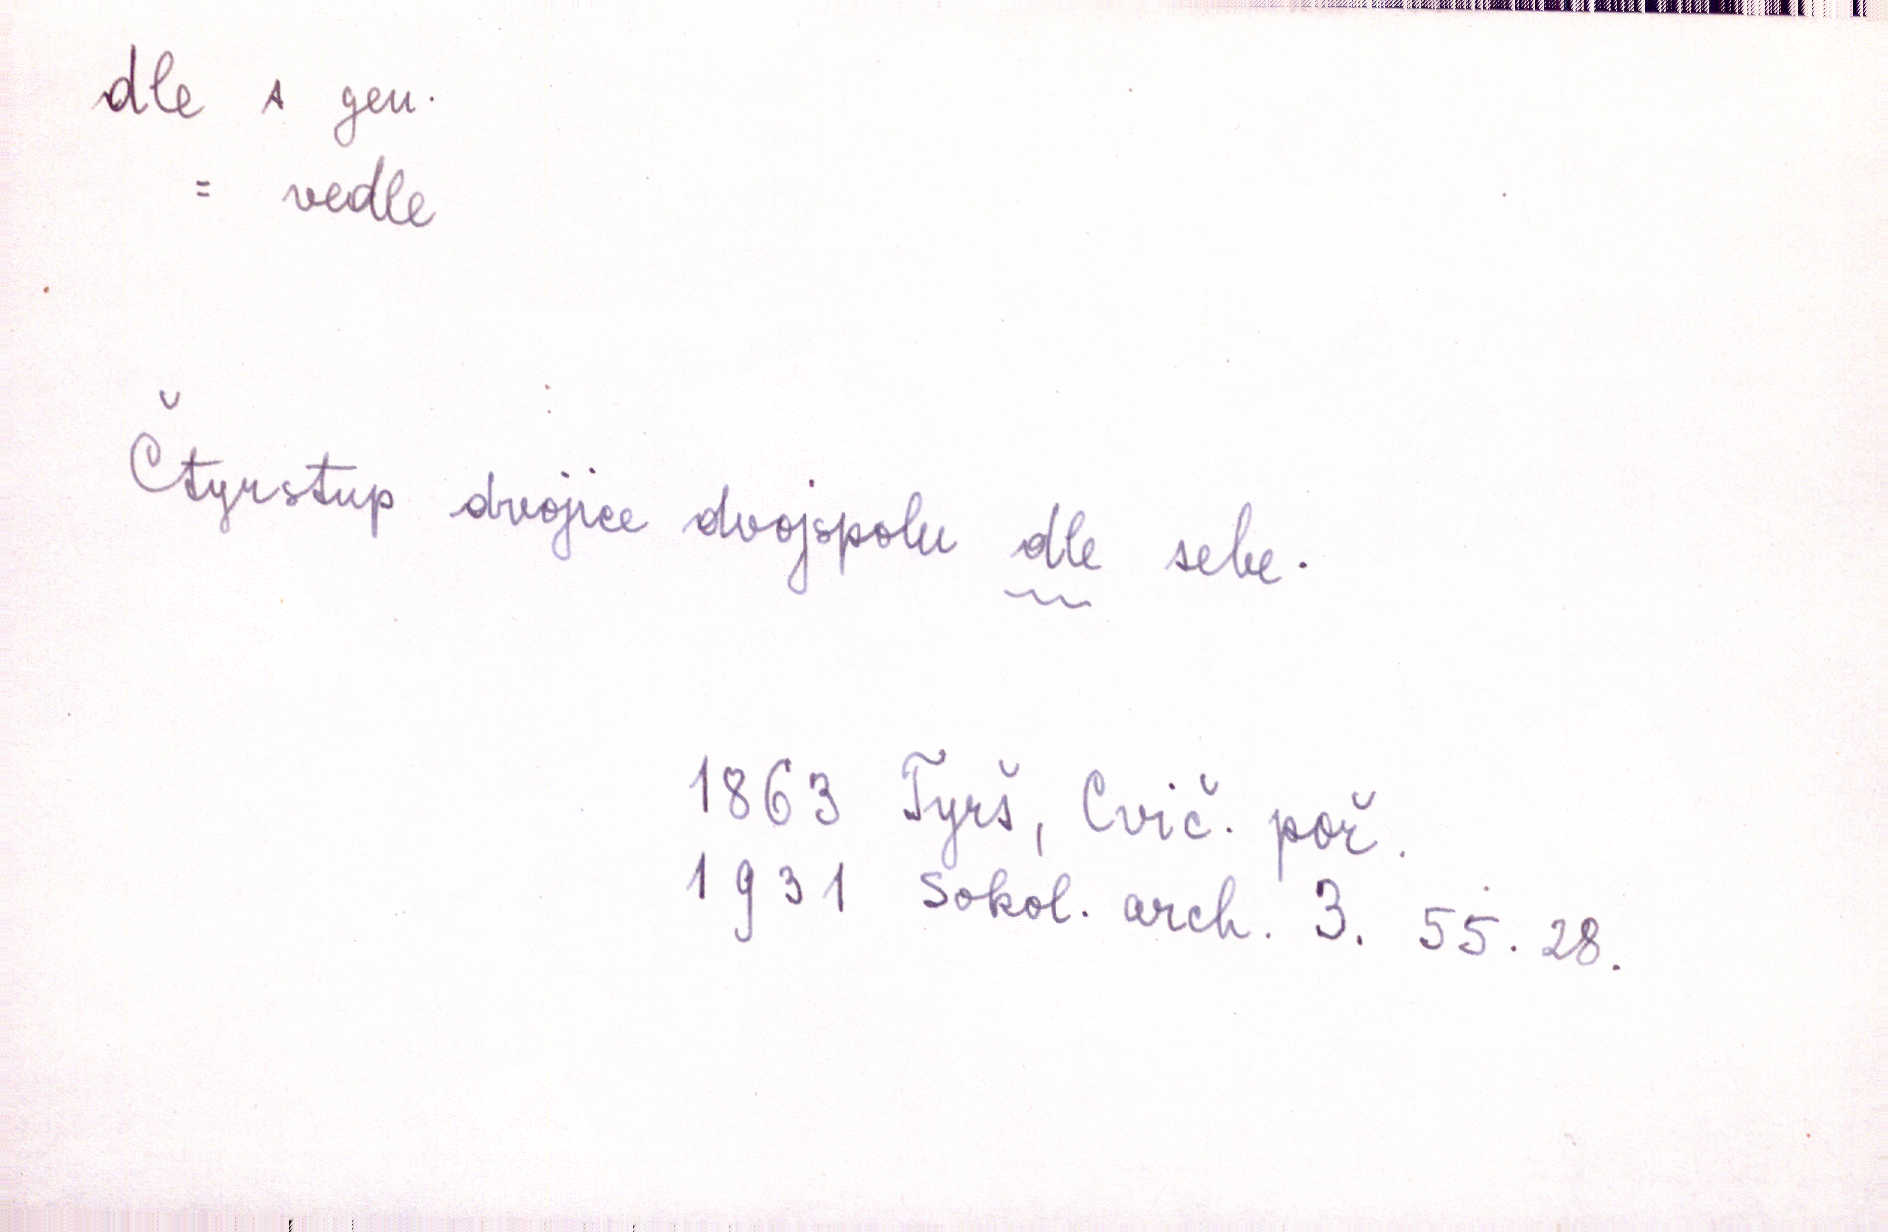 dle s gen.
= vedle
Čtyrstup dvojice dvojspolu dle sebe.
1863 Tyrš, Cvič. poř.
1931 Sokol. arch. 3. 55. 28.